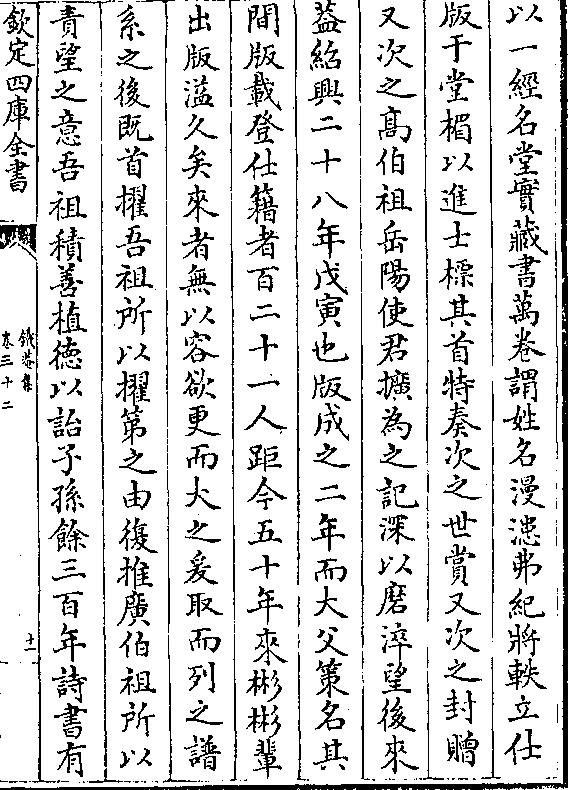 以一經名堂實藏書萬卷謂姓名漫漶弗紀將軼立仕
版于堂楣以進士標其首特奏次之世賞又次之封贈
又次之髙伯祖岳陽使君擴為之記深以磨淬望後來
葢紹興二十八年戊寅也版成之二年而大父策名其
間版載登仕籍者百二十一人距今五十年來彬彬輩
出版溢久矣來者無以容欲更而大之爰取而列之譜
系之後既首擢吾祖所以擢第之由復推廣伯祖所以
責望之意吾祖積善植徳以詒子孫餘三百年詩書有
欽定四庫全書
鐵菴集
卷三十二
十一